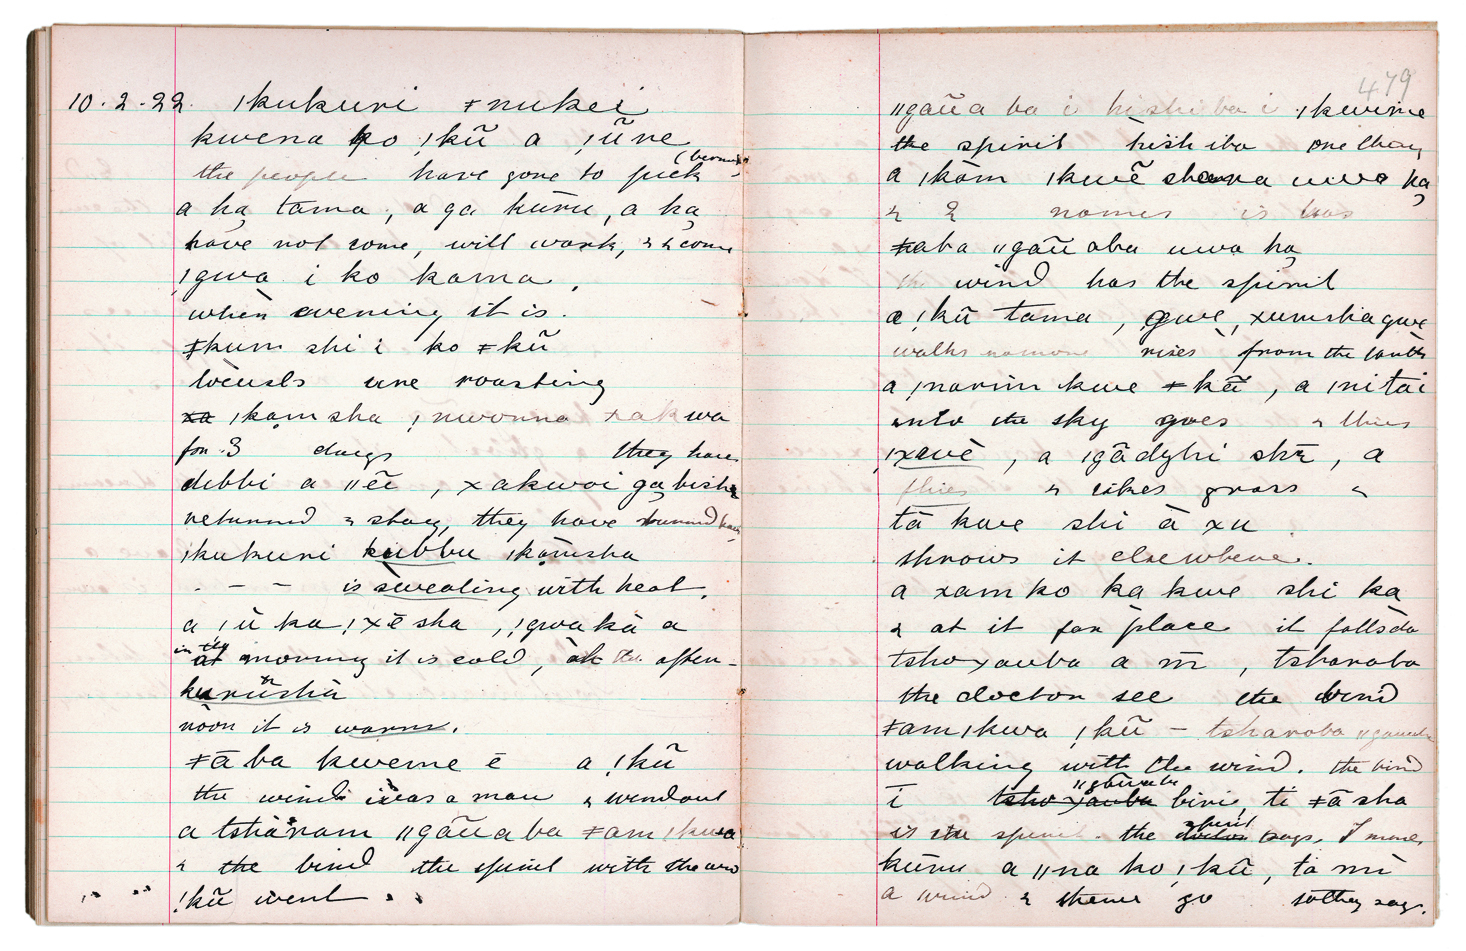 10.2.22. ǀkukuri ǂnukei
kwena ko ǃkũ a ǃũre
the people have gone to pick (berries)
a ha̧ tama, a ga kūru, a ha̧
have not come, will work, & & come
ǃgwa i ko kama,
when evening it is.
ǂkum shi i ko ǂkũ
locusts are roasting
xa ǀkam sha ǃnwonna xakwa
for 3 days they have
debbi a ǁẽi, xakwoi ga̧bisha
returned & stay, they have
ǀkukuri kubbu ǀkām̄sha
- - - is sweating with heat.
a ǀū ka ǃxē sha, ǃgwa kā a
in the at morning it is cold, at the after-
kurũnshā
noon it is warm.
ǂā ba kweme ē a ǃkũ
the wind is as a man & went out
a tshāram ǁgãuaba ǂam ǀkwa
& the bird the spirit with the
ǃkũ went
479
ǁgãua ba i hishiba i ǀkwime
the spirit hishiba one thing
a ǀkām ǀkwẽ shara uwa ha̧
& 2 names is has
ǂaba ǁgãu aba uwa ha̧
the wind has the spirit
a ǃkũ tama, gwe, xumsha gwe
walks no more rises from the earth
a ǃnarim kwe ǂkã, a ǀni tai
into the sky goes & flies
ǃxavē, a ǀgādyhi shī, a
flies & takes grass &
tā kwe shi ā xu
throws it elsewhere.
a xam ko ka kwe shi ka
& at it far place it falls do
tshoxauba a m̄, tsharaba
the doctor see the bird
ǂam ǀkwa ǃkũ - tsharaba ǁgauaba
walking with the wind. the bird
ī tshoxauba ǁgāuaba biri, ti ǂā sha
is the spirit. the doctor spirit says, I
kūru a ǁna ko ǃkũ, ta mi
a wind & there go so they say.